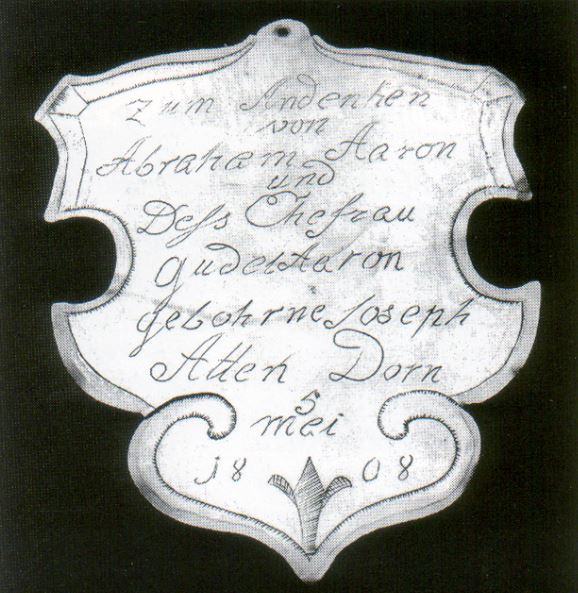 Zum Andenken
von
Abraham Aaron
und
Dess Ehefrau
gudel Aaron
gebohrne Joseph
Atten Dorn
5
mei
1808